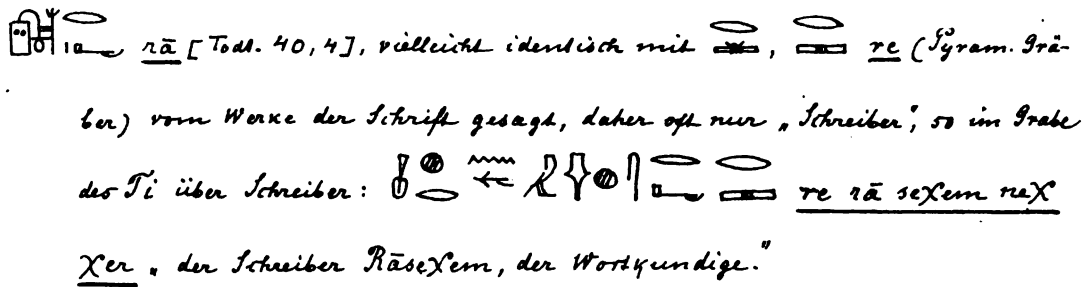 rā [Todt. 40,4], vielleicht identisch mit , re (Pyram. Grä-
ber) vom Werke der Schrift gesagt, daher oft nur „Schreiber", so im Grabe
des Ti über Schreiber: re rā seχem neχ
χer „der Schreiber Rāseχem, der Wortkundige."